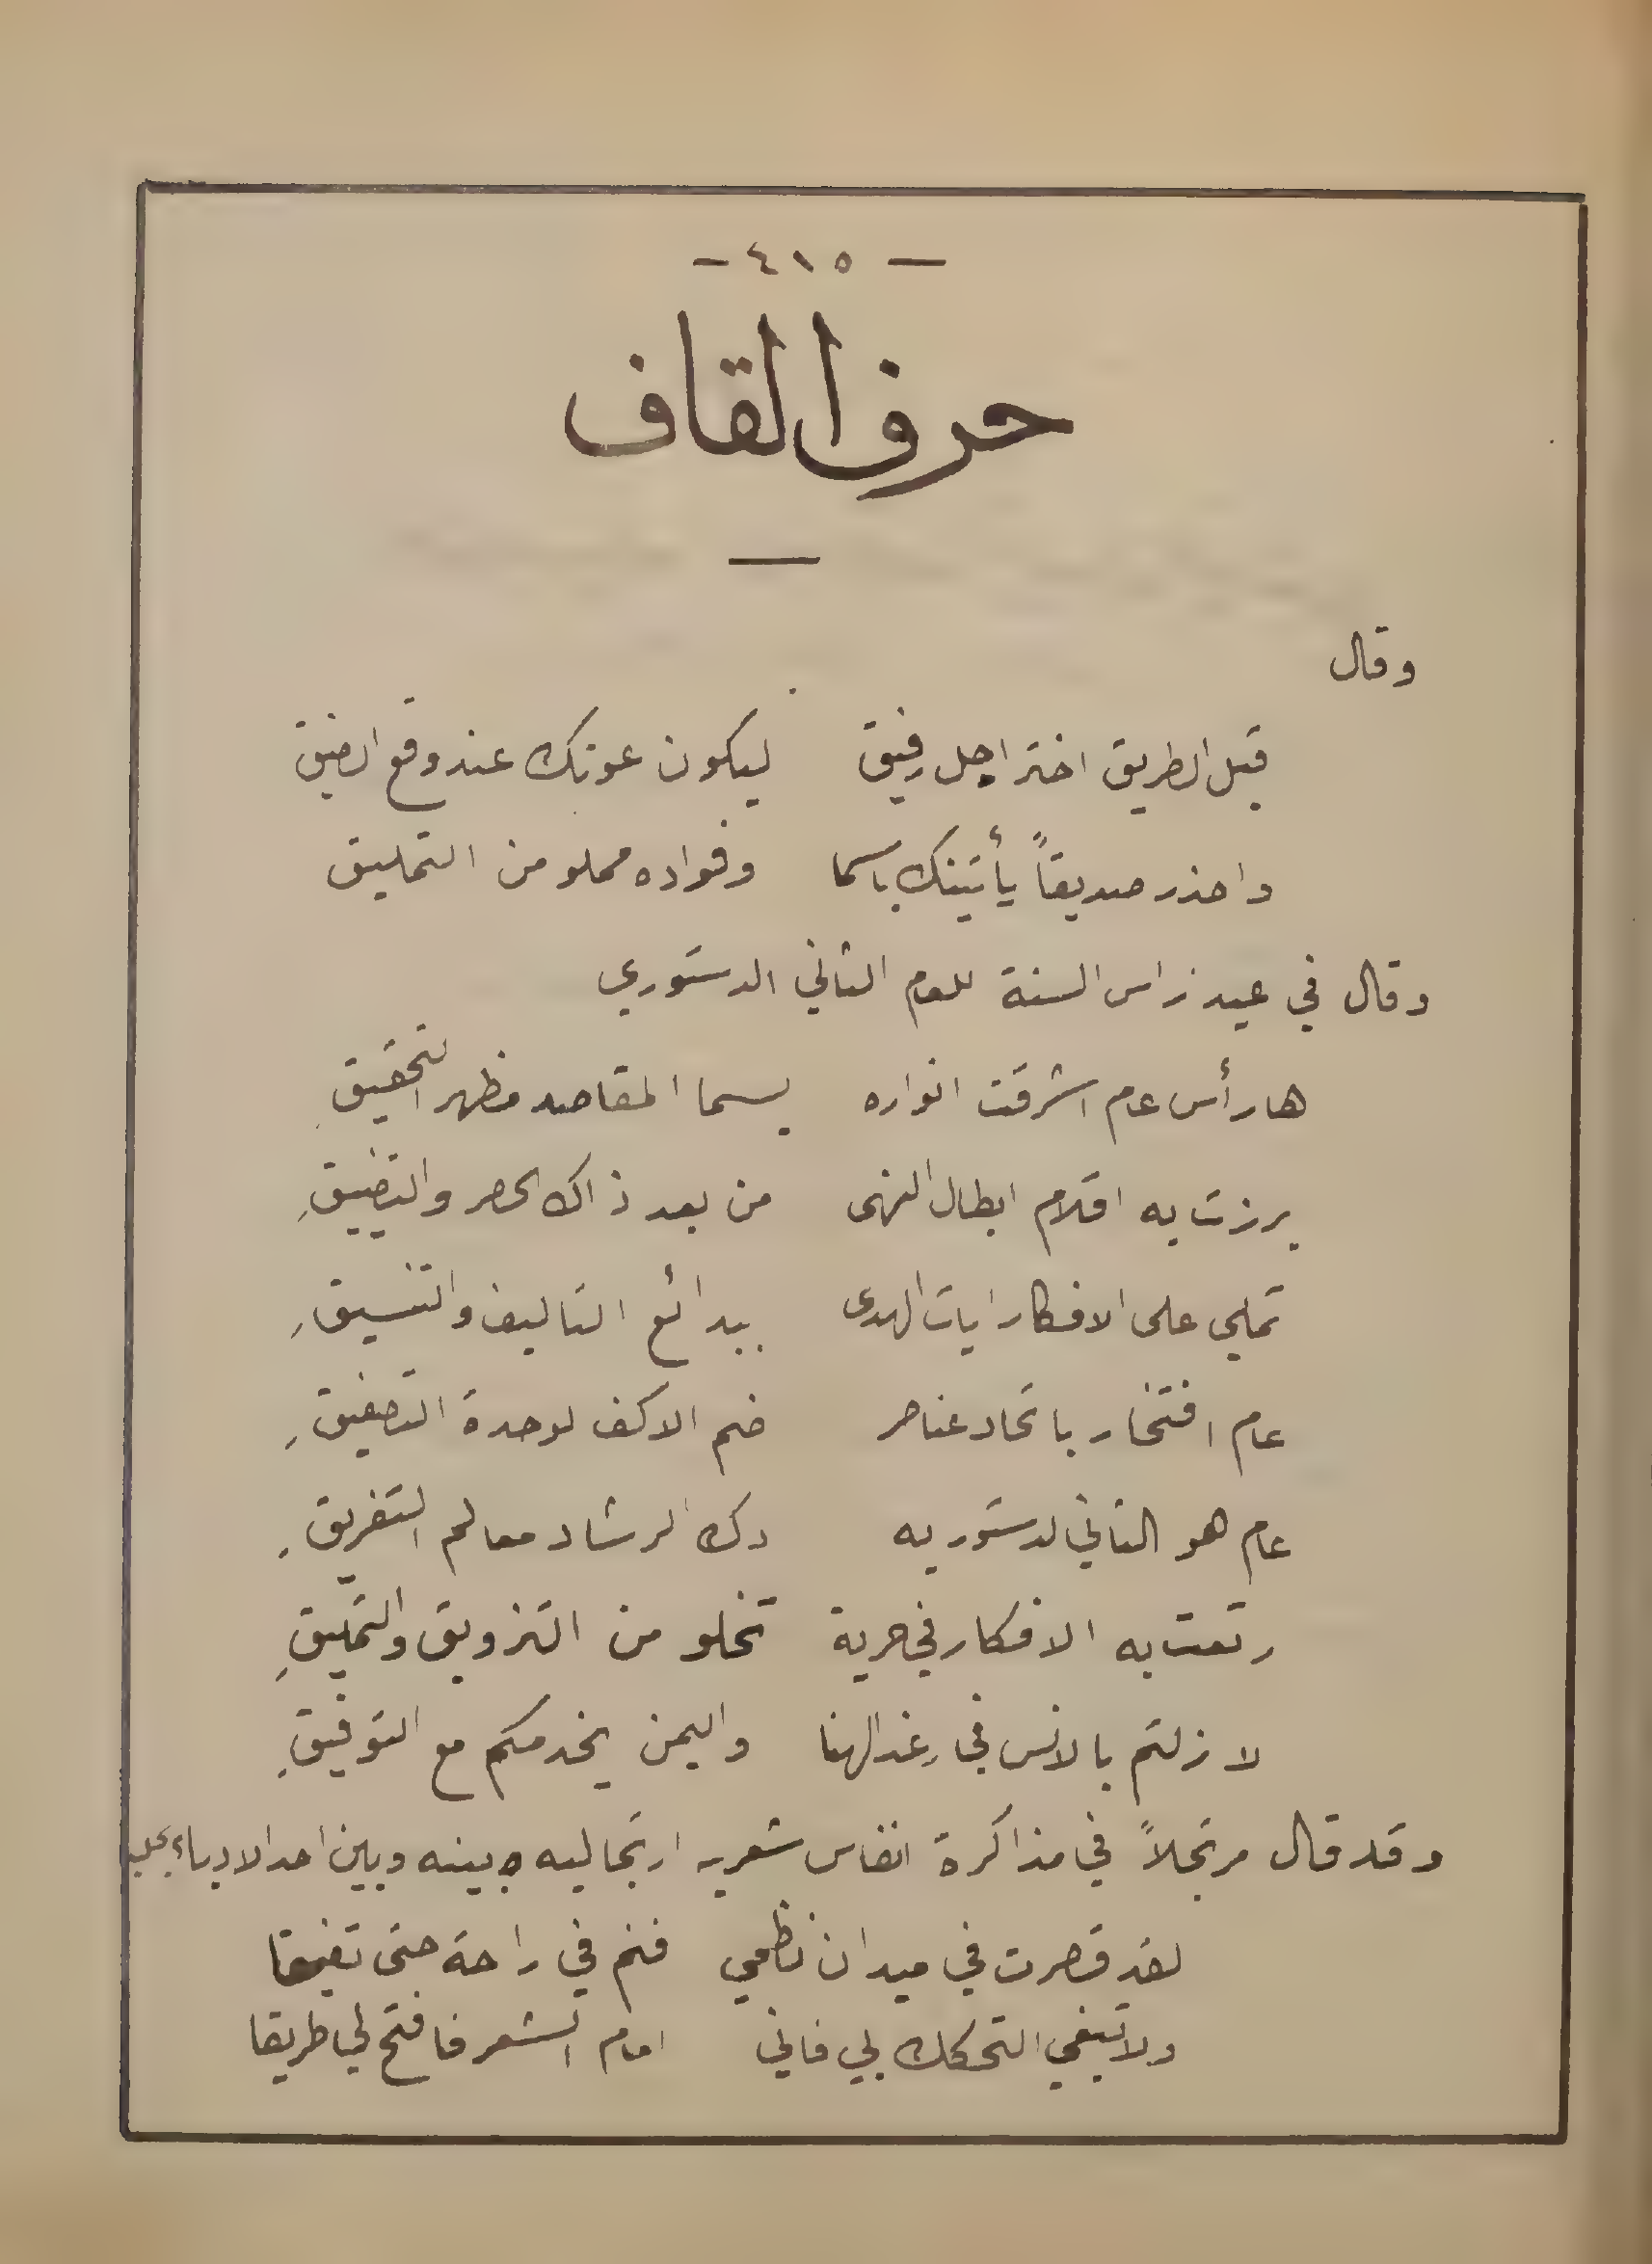 — ٤١٥ —
حرف القاف
وقال
قبل الطريق اختر اجل رفيق ليكون عونك عند وقع الضيق
واحذر صديقاً يأتينك باسما وفواده مملو من التمليق
وقال في عيد راس السنة للعام الثاني الدستوري
ها رأس عام اشرقت انواره بسما المقاصد مظهر التحقيقِ
برزت به اقلام ابطال النهى من بعد ذاك الحصر والتضييقِ
تملي على الافكار ايات الهدى ببدائع التاليف والتنسيقِ
عام افتخار باتحاد عناصر ضم الاكف لوحدة التصفيقِ
عام هو الثاني لدستور به دك الرشاد معالم التفريقِ
رتعت به الافكار في حرية تخلو من التزويق والتمليقِ
لا زلتم بالانس في رغد الهنا واليمن يخدمكم مع التوفيقِ
وقد قال مرتجلاً في مذاكرة انفاس شعريه ارتجاليه بينه وبين احد الادباء
لقد قصرت في ميدان نظمي فنم في راحة حتى تفيقا
ولا تبغي التحكك بي فاني امام الشعر فافتح لي طريقا